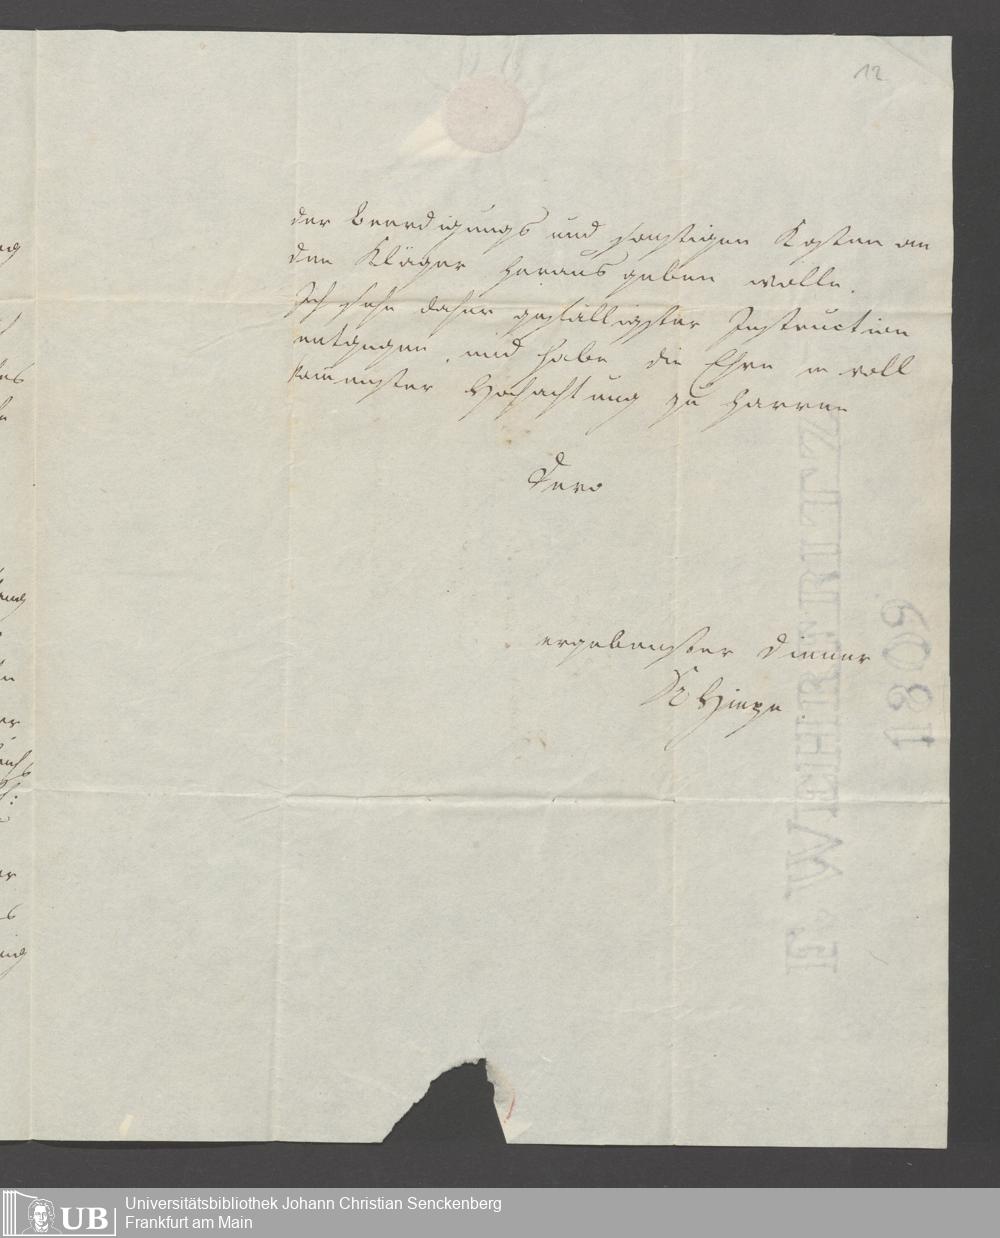 12
der Beerdigungs und sonstigen Kosten an
den Kläger heraus geben wolle.
Ich sehe daher gefälligster Instruction
entgegen, und habe die Ehre in voll
komenster Hochachtung zu harren
Dero
ergebenster Diener
F. WEHREITZ
1809
Universitätsbibliothek Johann Christian Senckenberg
Frankfurt am Main
UB